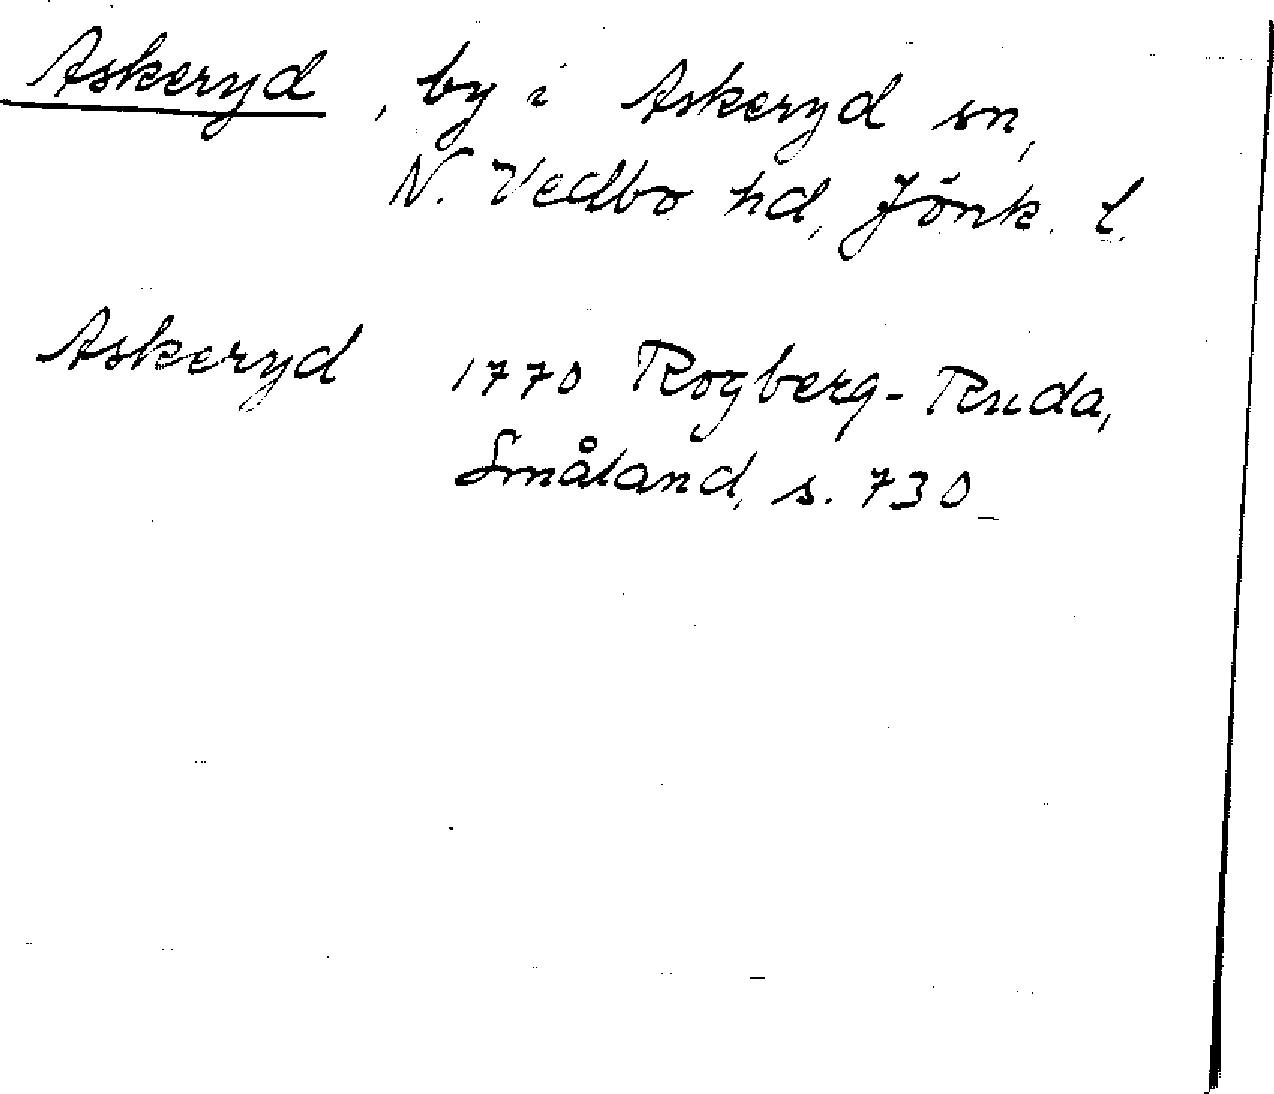 Askeryd, by i Askeryd sn,
N. Vedbo hd, Jönk. l.
Askeryd 1770 Rogberg-Ruda,
Småland, s. 730